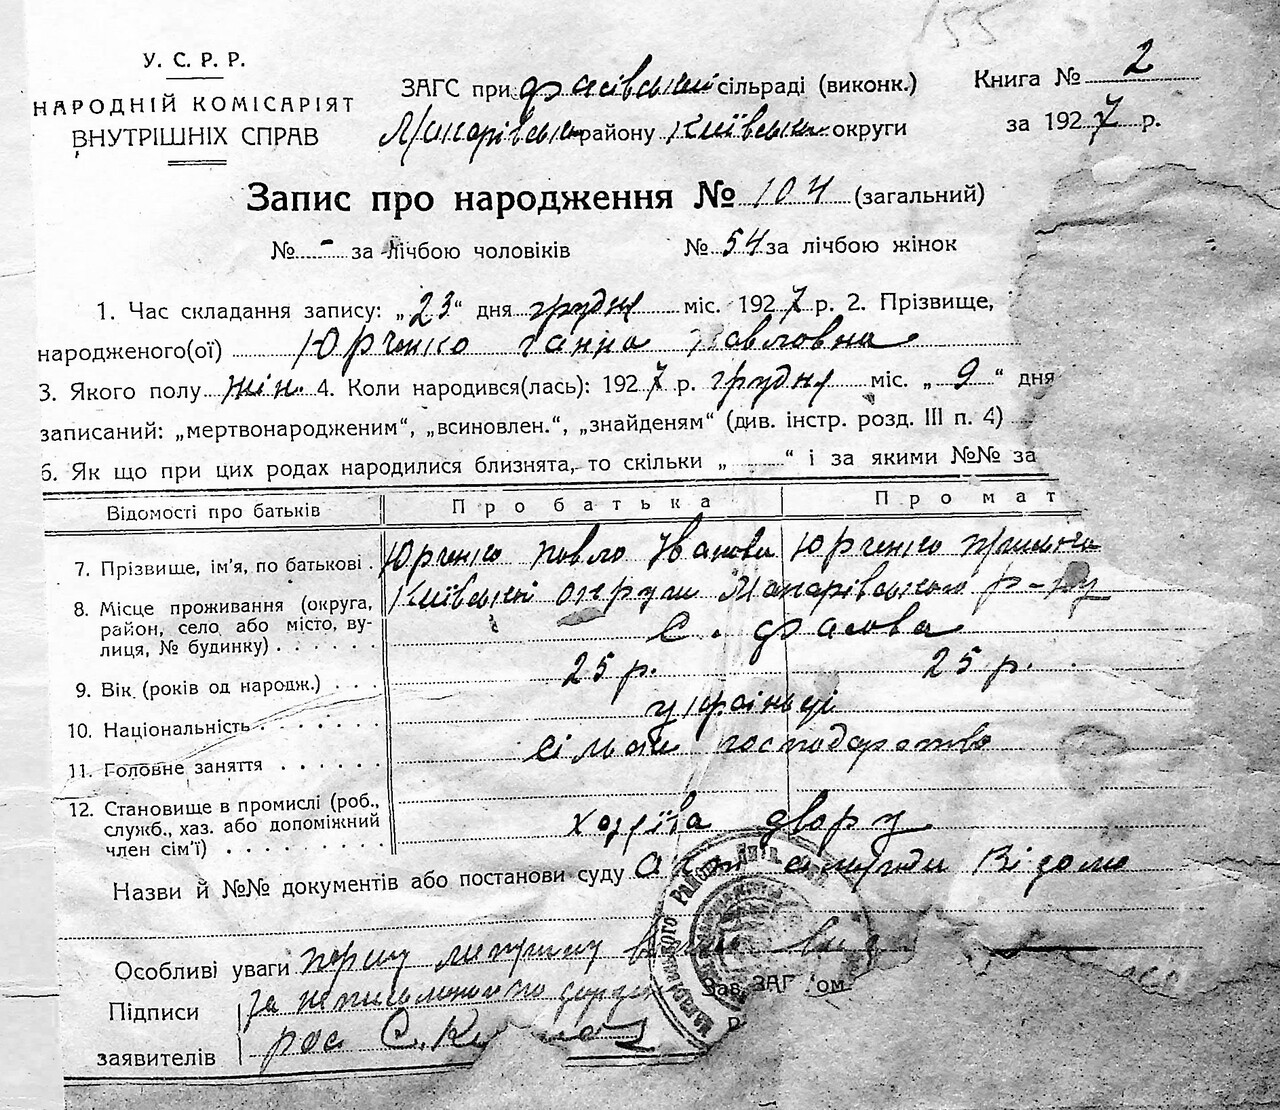 155
У. С. Р. Р.
НАРОДНІЙ КОМІСАРІЯТ
ВНУТРІШНІХ СПРАВ
ЗАГС при фасівський сільраді (виконк.)
Макарівськ району Київськ округи
Книга № 2
за 1927 р.
Запис про народження № 104 (загальний)
№ - за лічбою чоловіків № 54 за лічбою жінок
1. Час складання запису: „23“ дня грудня міс. 1927 р. 2. Прізвище,
народженого(ої) Юрченко Ганна Павловна
3. Якого полу жін. 4. Коли народився(лась): 1927 р. грудня міс. „9“ дня
записаний: „мертвонародженим“, „всиновлен.“, „знайденям“ (див. інстр. розд. III п. 4)
6. Як що при цих родах народилися близнята, то скільки „ “ і за якими №№ за
Відомості про батьків Про батька Про мат
7. Прізвище, ім'я, по батькові Юрченко Павло Іванови Юрченко
8. Місце проживання (округа, Київської округи Макарівського р-ну
район, село або місто, ву- с. Фасова
лиця, № будинку)
9. Вік (років од народж.) 25 р. 25 р.
10. Національність українці
11. Головне заняття сільське господарство
12. Становище в промислі (роб., хазяїва двору
служб., хаз. або допоміжний
член сім'ї)
Назви й №№ документів або постанови суду
Особливі уваги першу
Підписи за неписьменного
заявителів рос С.
Зав. ЗАГ ом